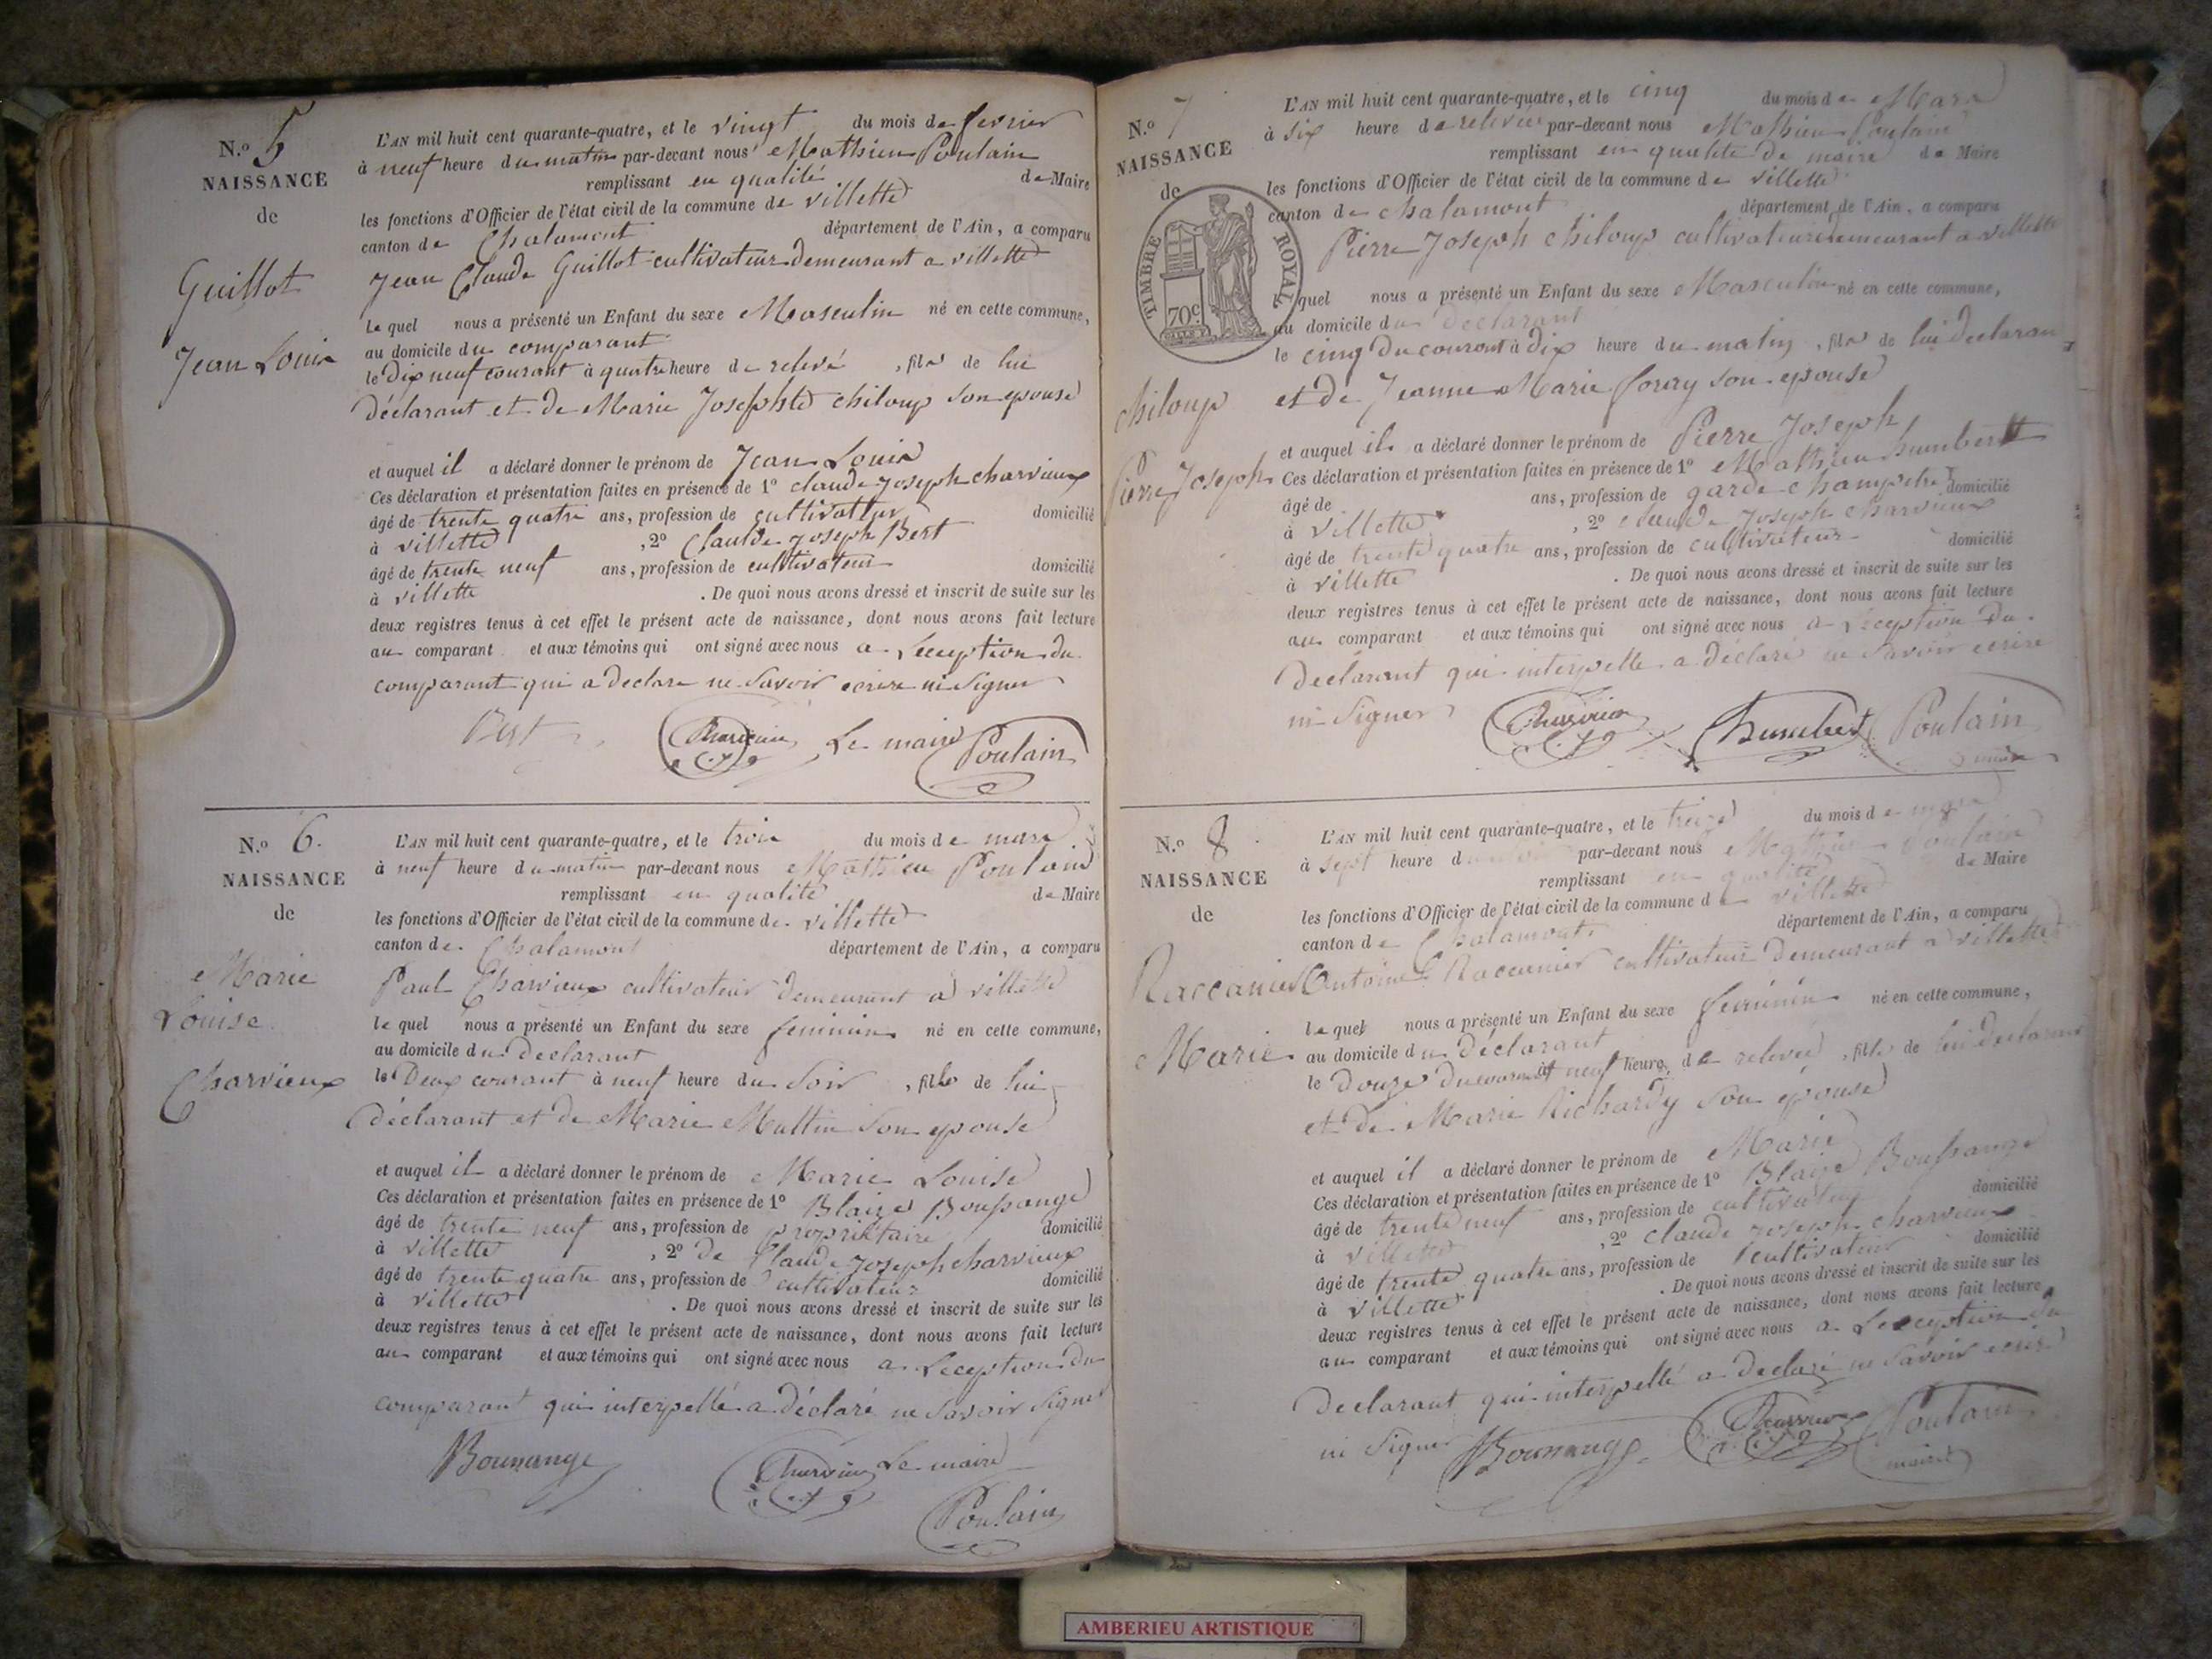 N.º 5
NAISSANCE
de
Guillot
Jean Louis
L'AN mil huit cent quarante-quatre, et le vingt du mois de fevrier
à neuf heure du matin par-devant nous Mathieu Poulain
remplissant en qualité de Maire
les fonctions d'Officier de l'état civil de la commune de villette
canton de Chalamont département de l'Ain, a comparu
Jean Claude Guillot cultivateur demeurant a villette
le quel nous a présenté un Enfant du sexe Masculin né en cette commune,
au domicile du comparant
le Dix neuf courant à quatre heure de relevé , fils de lui
déclarant et de Marie Josephte chiloup son epouse
et auquel il a déclaré donner le prénom de Jean Louis
Ces déclaration et présentation faites en présence de 1º claude Joseph charvieux
âgé de trente quatre ans, profession de cultivateur domicilié
à villette , 2º Claude Joseph Bert
âgé de trente neuf ans, profession de cultivateur domicilié
à villette . De quoi nous avons dressé et inscrit de suite sur les
deux registres tenus à cet effet le présent acte de naissance, dont nous avons fait lecture
au comparant et aux témoins qui ont signé avec nous a Leception du
comparant qui a declare ne Savoir ecrire ni Signer
Bert Charvieux Le maire Poulain
N.º 6.
NAISSANCE
de
Marie
Louise
Charvieux
L'AN mil huit cent quarante-quatre, et le trois du mois de mars
à neuf heure du matin par-devant nous Mathieu Poulain
remplissant en qualité de Maire
les fonctions d'Officier de l'état civil de la commune de villette
canton de Chalamont département de l'Ain, a comparu
Paul Charvieux cultivateur demeurant a villette
le quel nous a présenté un Enfant du sexe feminin né en cette commune,
au domicile du Declarant
le Deux courant à neuf heure du Soir , fille de lui
déclarant et de Marie Multin son epouse
et auquel il a déclaré donner le prénom de Marie Louise
Ces déclaration et présentation faites en présence de 1º Blaize Boussange
âgé de trente neuf ans, profession de propriétaire domicilié
à villette , 2º de Claude Joseph charvieux
âgé de trente quatre ans, profession de cultivateur domicilié
à villette . De quoi nous avons dressé et inscrit de suite sur les
deux registres tenus à cet effet le présent acte de naissance, dont nous avons fait lecture
au comparant et aux témoins qui ont signé avec nous a Leception du
comparant qui interpellé a déclaré ne Savoir Signer
Boussange Charvieux Le maire
Poulain
N.º 7
NAISSANCE
de
TIMBRE ROYAL
70c
chiloup
Pierre Joseph
L'AN mil huit cent quarante-quatre, et le cinq du mois de Mars
à six heure de relevée par-devant nous Mathieu Poulain
remplissant en qualité de maire de Maire
les fonctions d'Officier de l'état civil de la commune de villette
canton de chalamont département de l'Ain, a comparu
Pierre Joseph chiloup cultivateur demeurant a villette
quel nous a présenté un Enfant du sexe Masculin né en cette commune,
au domicile du declarant
le cinq du courant à dix heure du matin , fils de lui declarant
et de Jeanne Marie son epouse
et auquel il a déclaré donner le prénom de Pierre Joseph
Ces déclaration et présentation faites en présence de 1º Mathieu humbert
âgé de ans, profession de garde champetre domicilié
à villette , 2º claude Joseph charvieux
âgé de trente quatre ans, profession de cultivateur domicilié
à villette . De quoi nous avons dressé et inscrit de suite sur les
deux registres tenus à cet effet le présent acte de naissance, dont nous avons fait lecture
au comparant et aux témoins qui ont signé avec nous a Leception du
Declarant qui interpelle a déclaré ne Savoir ecrire
ni Signer Charvieux humbert Poulain
maire
N.º 8
NAISSANCE
de
Raccanier
Marie
L'AN mil huit cent quarante-quatre, et le treize du mois de mars
à sept heure d par-devant nous Mathieu Poulain
remplissant en qualité de Maire
les fonctions d'Officier de l'état civil de la commune de villette
canton de Chalamont département de l'Ain, a comparu
Antoine Raccanier cultivateur demeurant a villette
le quel nous a présenté un Enfant du sexe feminin né en cette commune,
au domicile du déclarant
le douze du courant à neuf heure de relevée , fille de lui declarant
et de Marie Richardy son epouse
et auquel il a déclaré donner le prénom de Marie
Ces déclaration et présentation faites en présence de 1º Blaize Boussange
âgé de trente neuf ans, profession de cultivateur domicilié
à villette , 2º claude Joseph charvieux
âgé de trente quatre ans, profession de cultivateur domicilié
à villette . De quoi nous avons dressé et inscrit de suite sur les
deux registres tenus à cet effet le présent acte de naissance, dont nous avons fait lecture
au comparant et aux témoins qui ont signé avec nous a Leception du
Declarant qui interpellé a declaré ne Savoir ecrire
ni Signer Boussange Charvieux Poulain
maire
AMBERIEU ARTISTIQUE